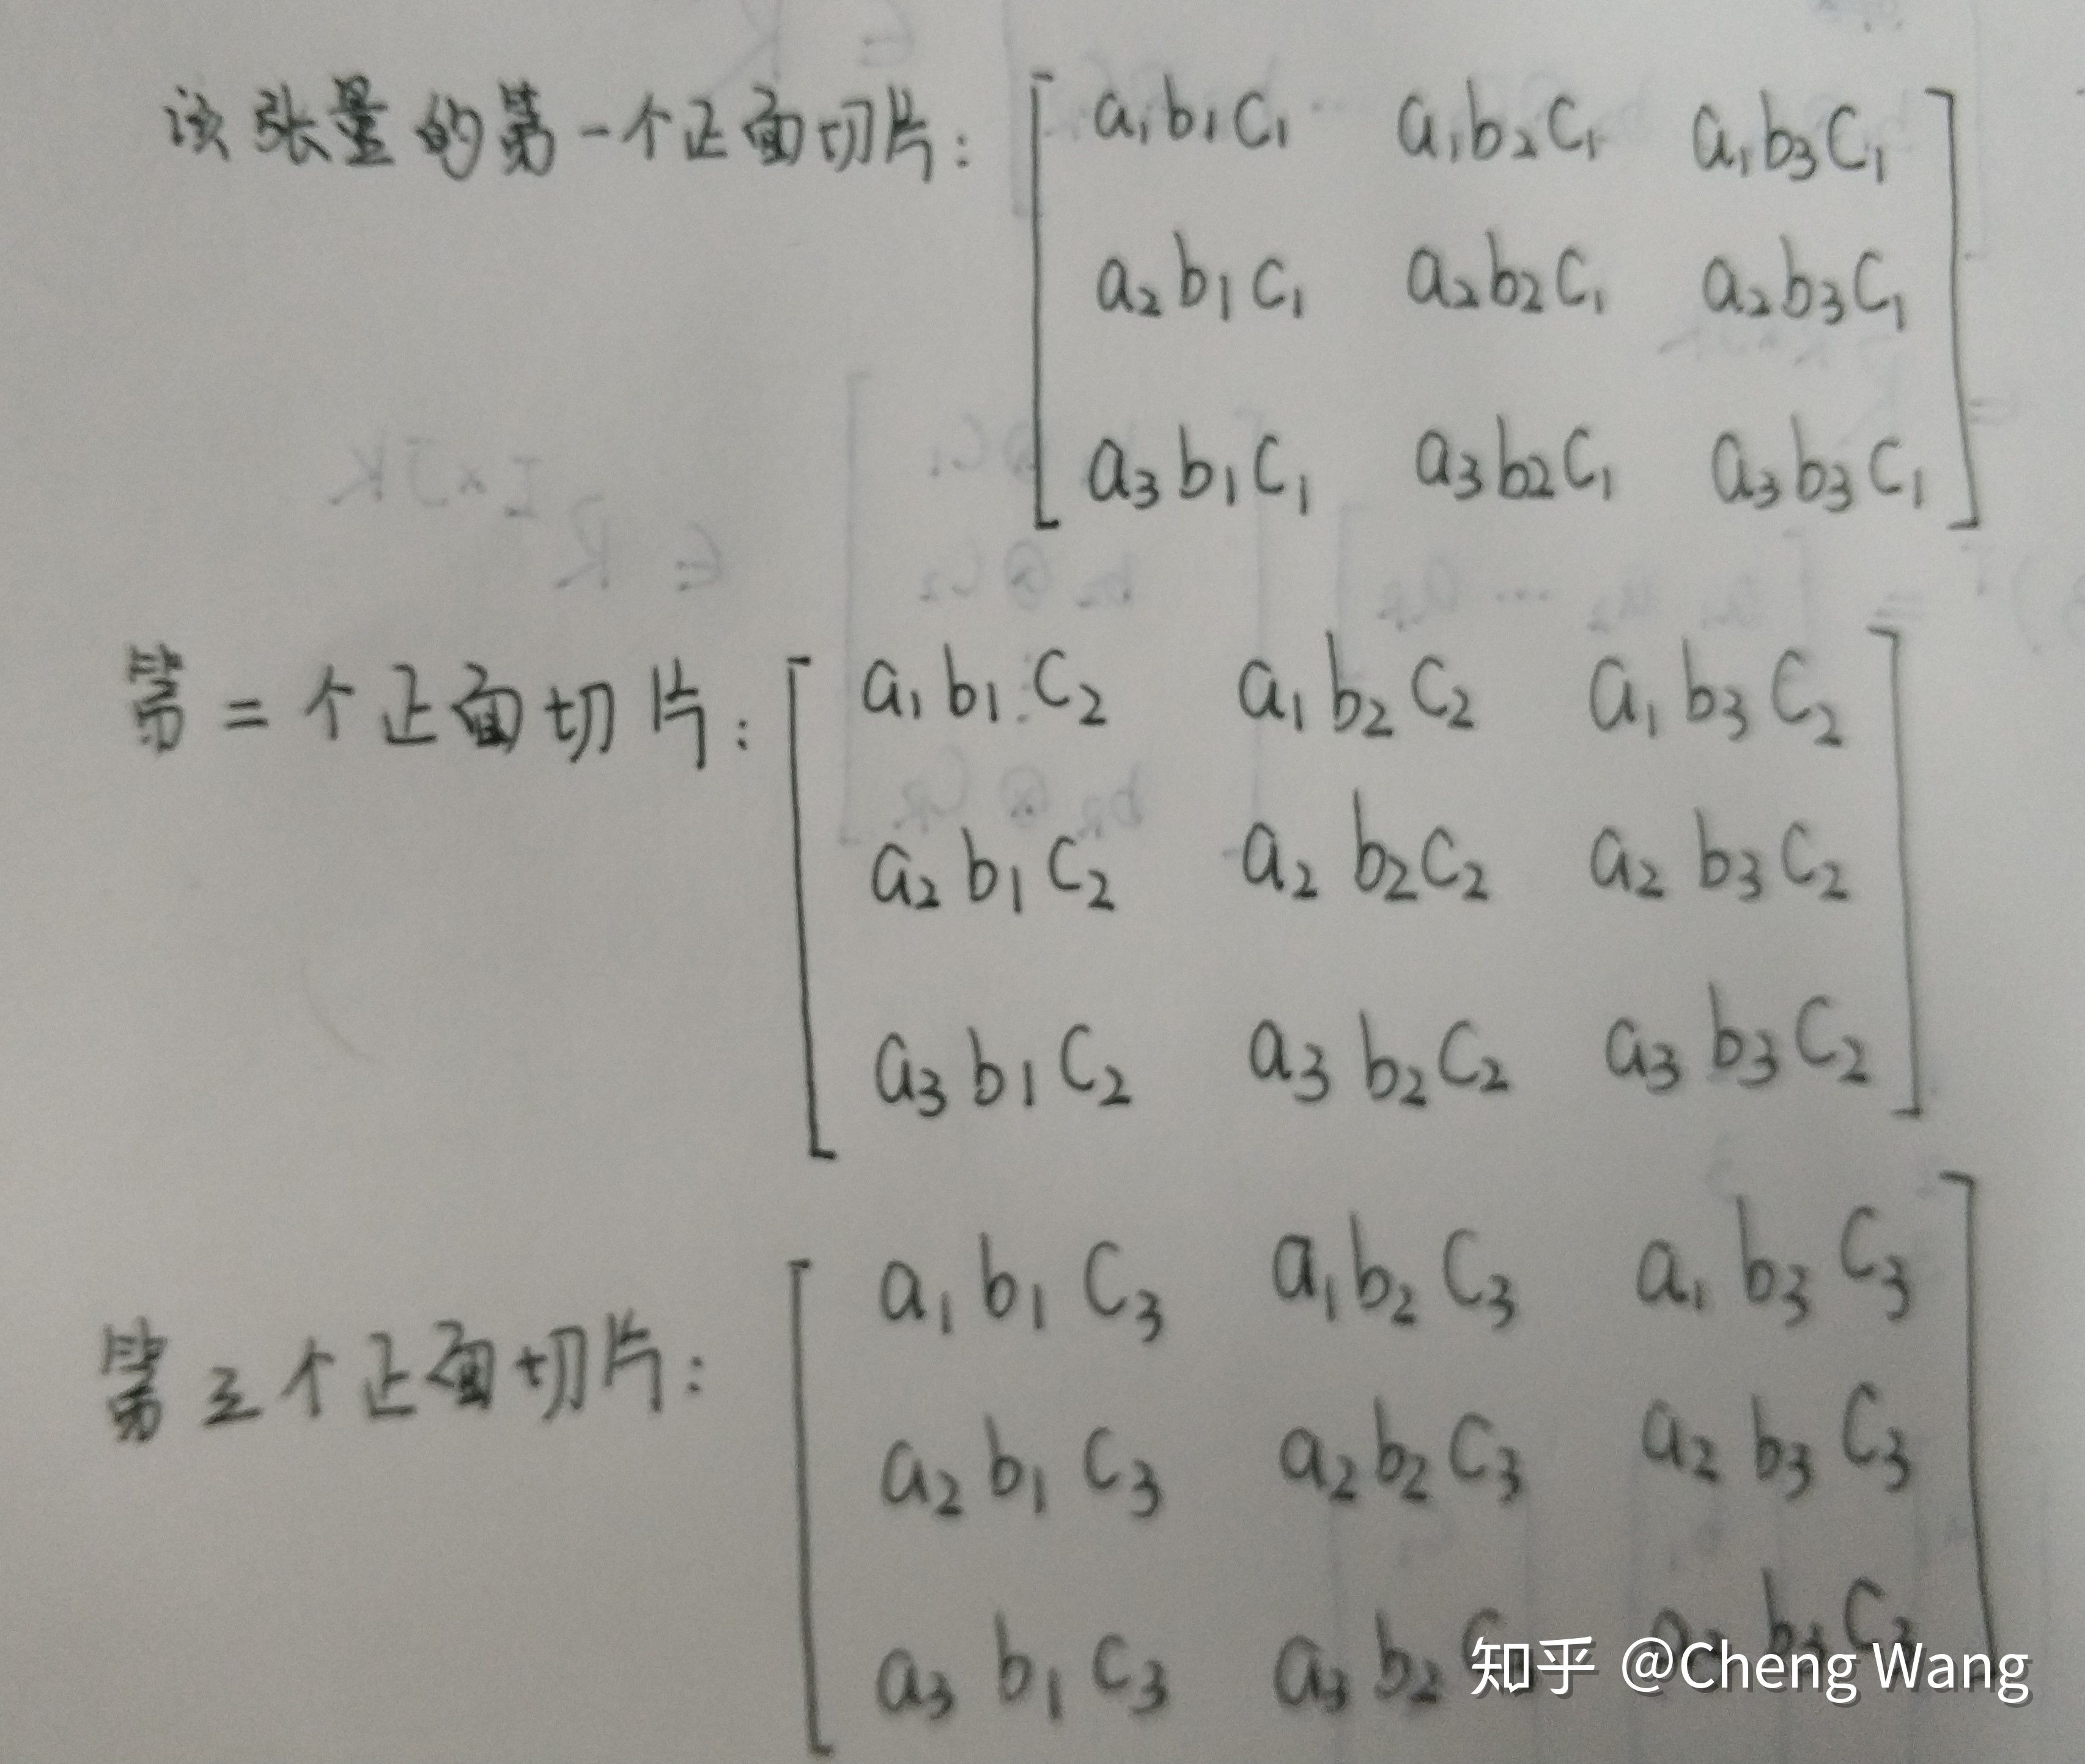 该张量的第一个正面切片: [ a₁b₁c₁ a₁b₂c₁ a₁b₃c₁
a₂b₁c₁ a₂b₂c₁ a₂b₃c₁
a₃b₁c₁ a₃b₂c₁ a₃b₃c₁ ]
第二个正面切片: [ a₁b₁c₂ a₁b₂c₂ a₁b₃c₂
a₂b₁c₂ a₂b₂c₂ a₂b₃c₂
a₃b₁c₂ a₃b₂c₂ a₃b₃c₂ ]
第三个正面切片: [ a₁b₁c₃ a₁b₂c₃ a₁b₃c₃
a₂b₁c₃ a₂b₂c₃ a₂b₃c₃
a₃b₁c₃ a₃b₂ b₃c₃ ]
知乎 @Cheng Wang